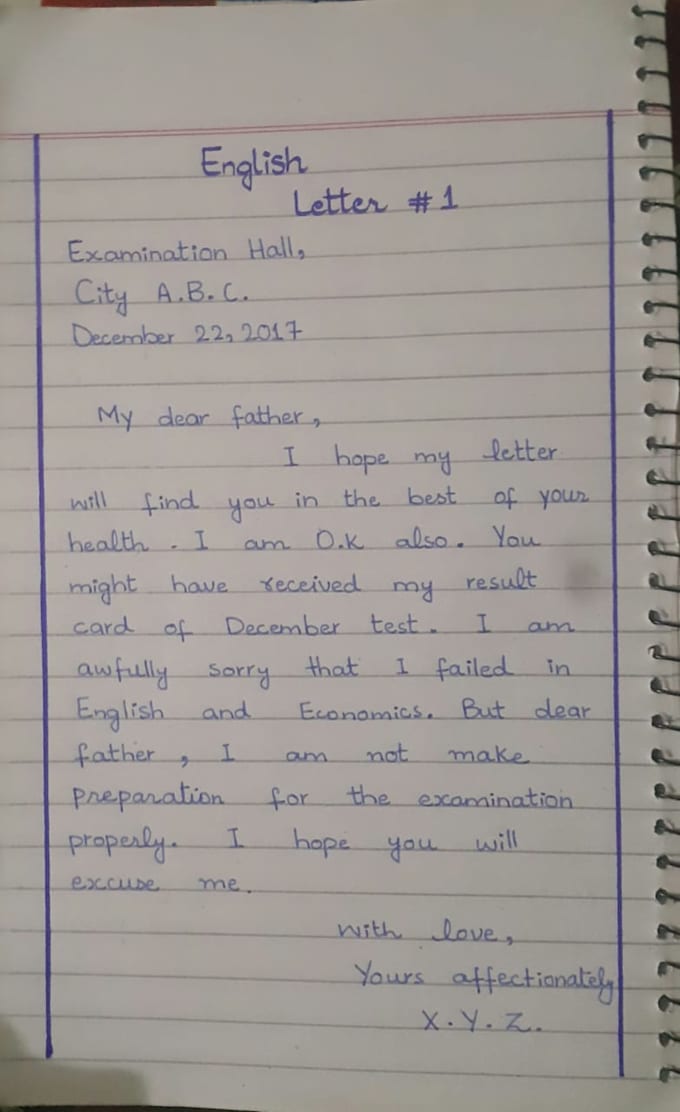 English
Letter #1
Examination Hall,
City A.B.C.
December 22, 2017
My dear father,
I hope my letter
will find you in the best of your
health. I am O.K also. You
might have received my result
card of December test. I am
awfully sorry that I failed in
English and Economics. But dear
father, I am not make
preparation for the examination
properly. I hope you will
excuse me.
With love,
Yours affectionately
X.Y.Z.